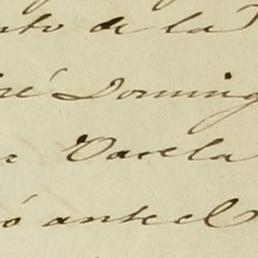 nto de la
ré Doming
Varela
ó ante el